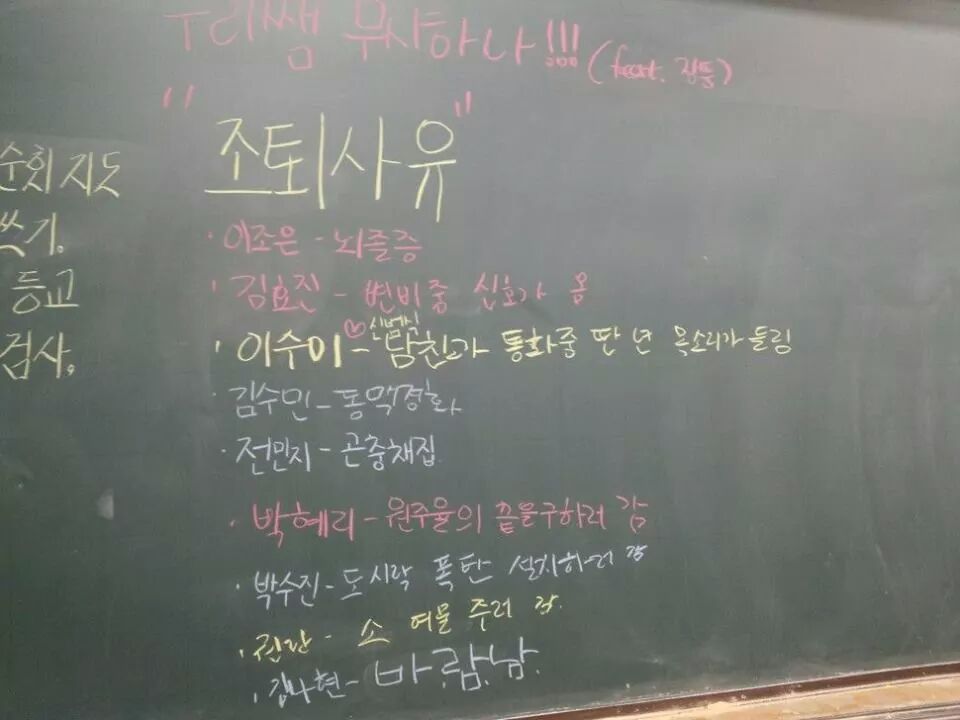 우리쌤 무사하나!!! (feat. 점퉁)
"조퇴사유"
순회지도
쓰기.
등교
검사.
· 이조은 - 뇌졸증
· 김효진 - 변비중 신호가 옴
· 이수이 - ♡신범식 남친과 통화중 딴 년 목소리가 들림
· 김수민 - 동맥경화
· 전민지 - 곤충채집
· 박혜리 - 원주율의 끝을구하러 감
· 박수진 - 도시락 폭탄 설치하러 감
· 권란 - 소 여물 주러 감.
· 김나현 - 바.람.남.